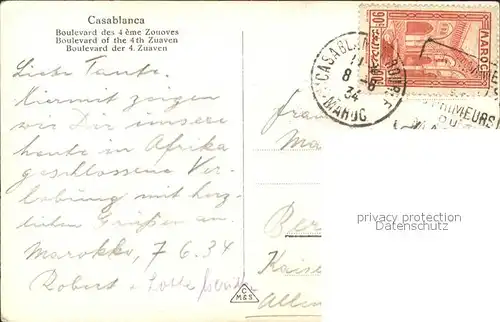 Casablanca
Boulevard des 4ème Zouoves
Boulevard of the 4th Zuaven
Boulevard der 4. Zuaven
Liebe Tante.
Hiermit zeigen
wir Dir unsere
heute in Afrika
geschlossene Ver-
lobung mit herz-
lichen Grüßen an.
Marokko, 7 6. 34
Robert u Lotte
C
M&S
90
MAROC
CASABLANCA
8-6
34
MAROC
PRIMEURS
Ma
Ber
Kaise
Allem
privacy protection
Datenschutz